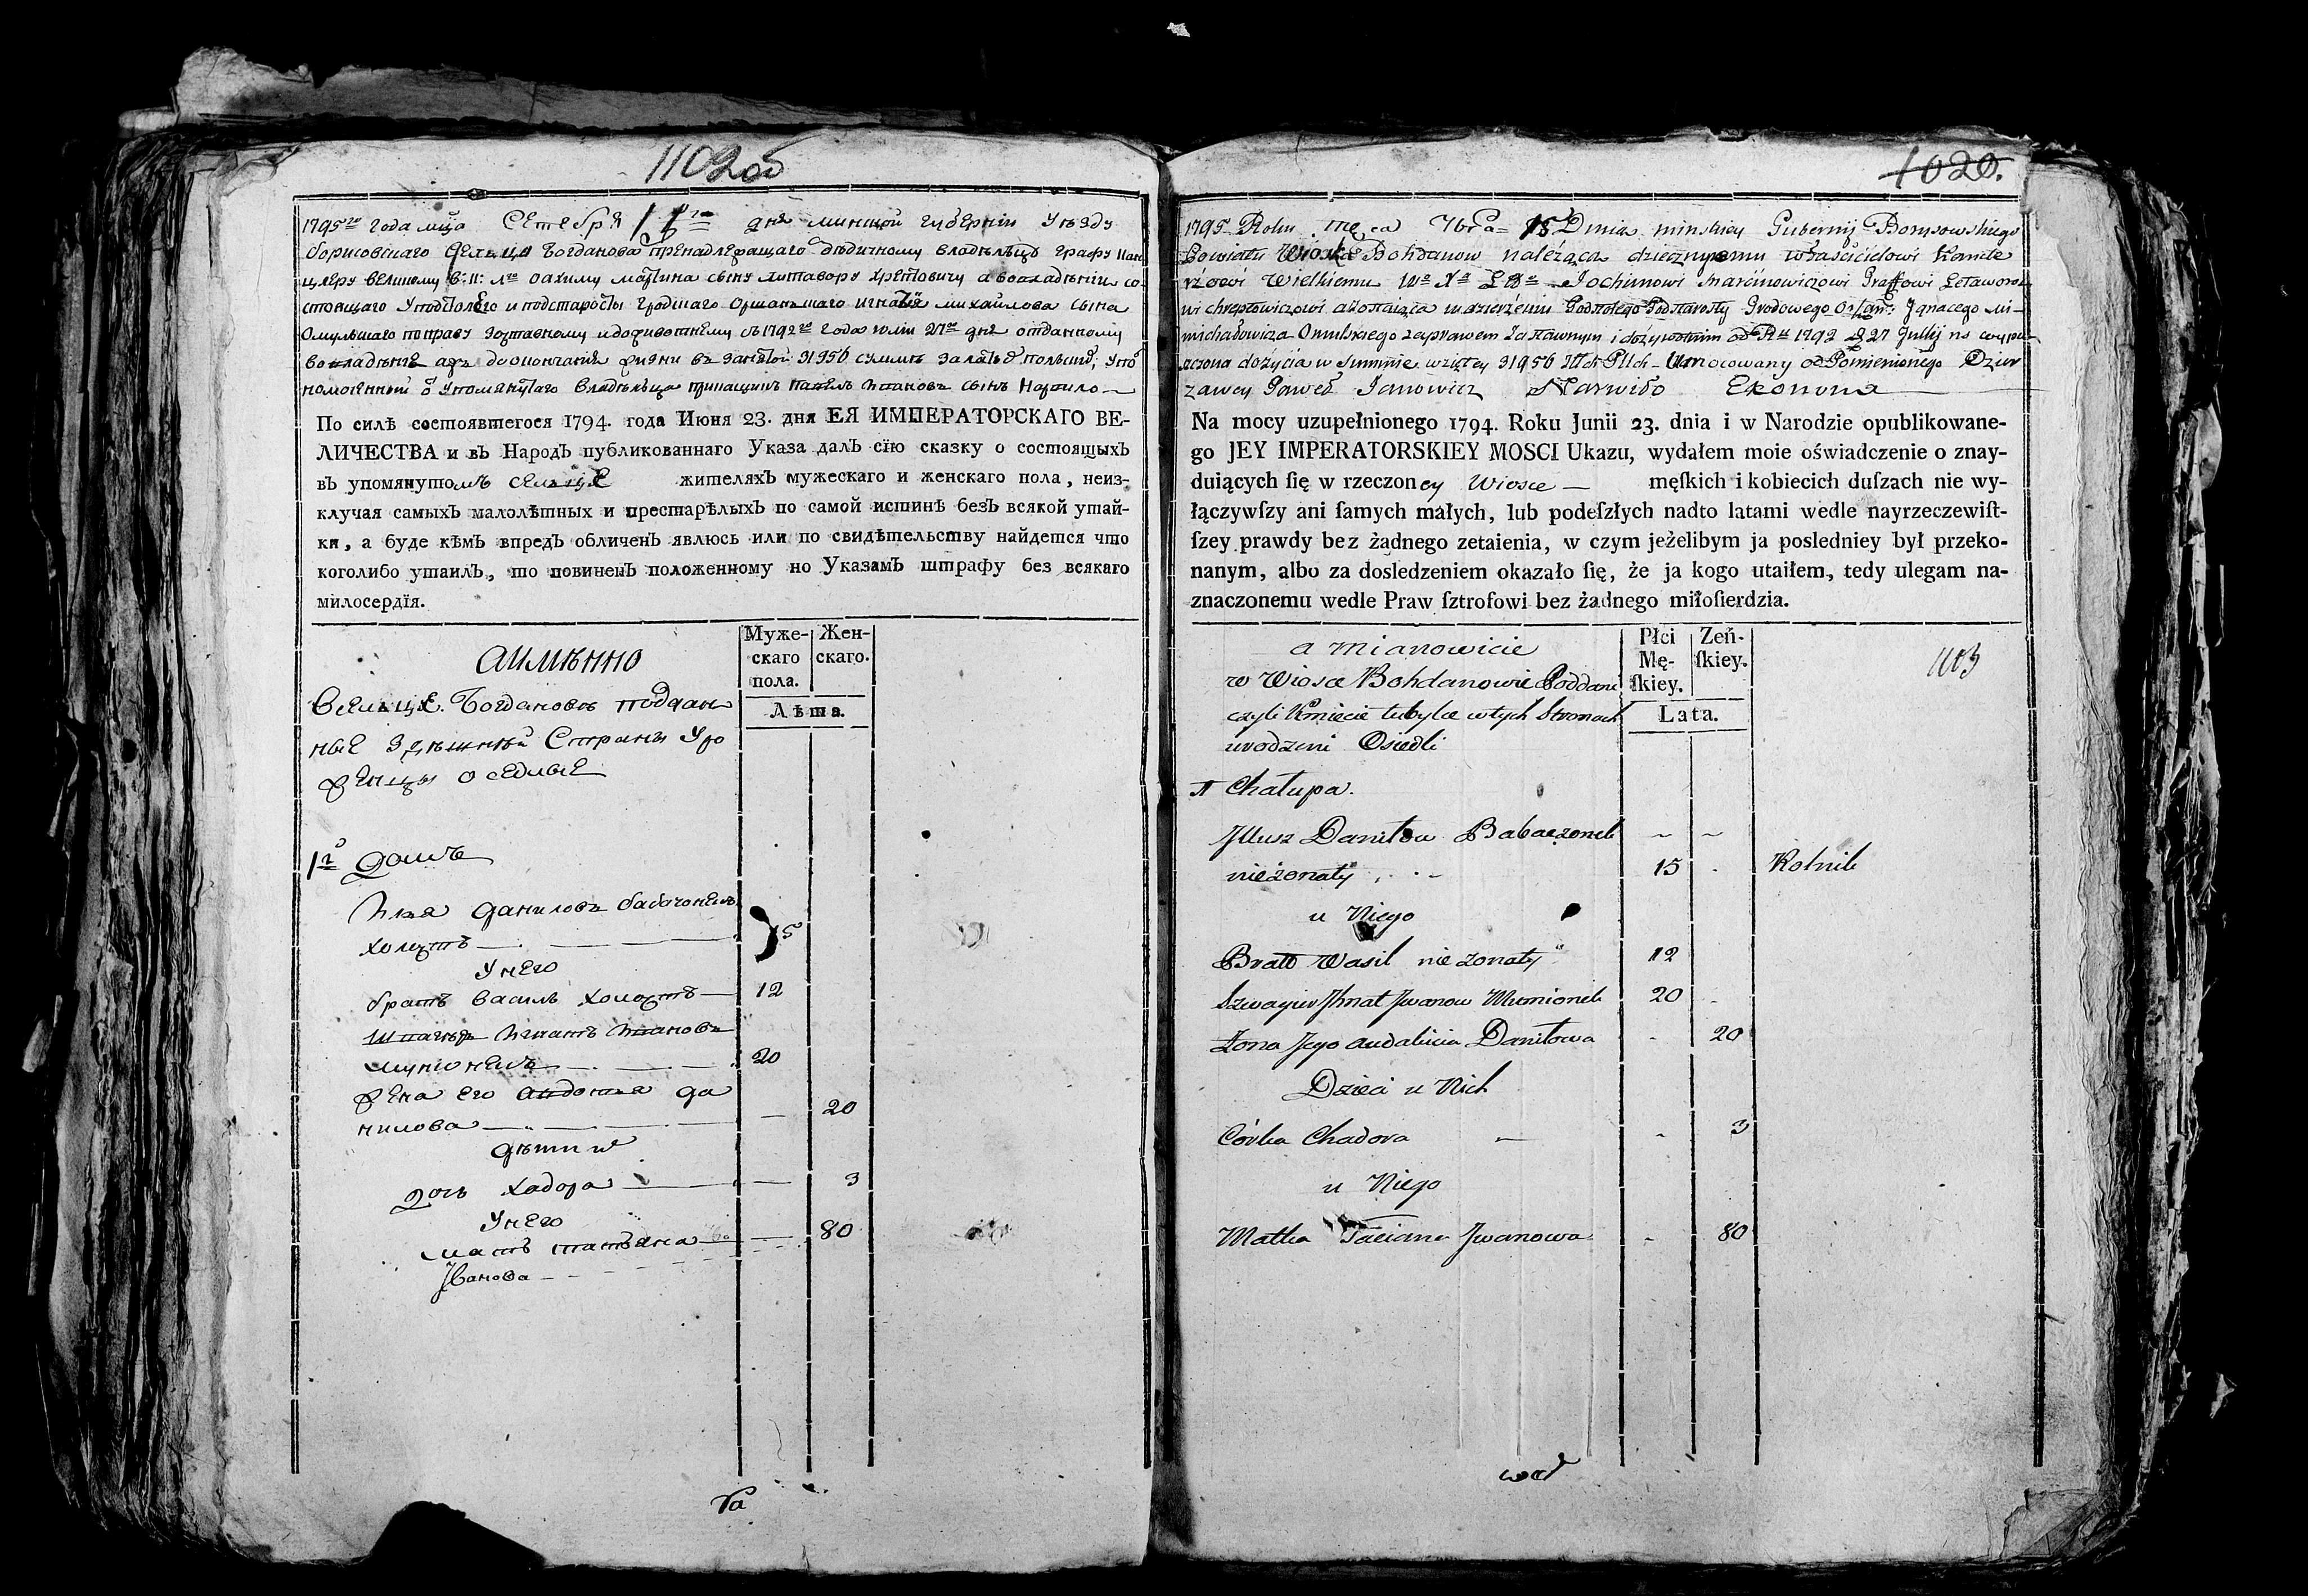 1102об
1795го года мца Сетебря 15го дня минской губернии уезду
борисовскаго сельца Богданова пренадлежащаго дедичному владельцу графу кан
цлеру великому В: К: Лго оахиму мартина сыну литавору хрептовичу а во владении со
стоящаго у подстолего и подстаросты гродскаго оршанскаго игнатия михайлова сына
Омульскаго по праву заставному и доживотнему с 1792го года юлии 27го дня отданному
во владение аж до окончания жизни в занятой 31956 сумме залатых польских, упо
помоченный от упомянутаго владельца Павел Иванов сын Нарвило
По силѣ состоявшегося 1794. года Июня 23. дня ЕЯ ИМПЕРАТОРСКАГО ВЕ-
ЛИЧЕСТВА и въ Народъ публикованнаго Указа далъ сїю сказку о состоящыхъ
въ упомянутомъ селце жителяхъ мужескаго и женскаго пола, неиз-
ключая самыхъ малолѣтныхъ и престарѣлыхъ по самой истинѣ безъ всякой утай-
ки, а буде кѣмъ впредъ обличенъ явлюсь или по свидѣтельству найдется что
коголибо утаилъ, то повиненъ положенному по Указамъ штрафу без всякаго
милосердїя.
Муже-
скаго
пола.
Жен-
скаго.
Лѣта.
а имѣнно
Вселце Богданове поддан
ные здешней Страны Уро
женцы оседлые
1й Домъ
Илья данилов бабачонекъ
холостъ 15
У него
братъ василь холостъ 12
Швагер Игнатъ Иванов
мунионекъ 20
жена его авдотья да
нилова 20
дети их
дочь хадора 3
У него
мать татьяна 80
Иванова
ва
1020.
1795 Roku mca 7bra 15 Dnia minskiey Gubernij Borysowskiego
Powiatu Wioska Bohdanow należąca dziecznemu właścicielowi Kancle
rzowi Wielkiemu Wo Xa Lgo Jochimowi Marcinowiczowi Graffowi Letaworo
wi chreptowiczowi a zostaiąca w dzierżeniu Podstolego Podstarosty Grodowego Orszan: Ignacego Mi-
michałowicza Omulskiego za prawem Zastawnym i dożywotnim od Ru 1792 D 27 Jullij
do życia w summie wziętey 31956 Złch Pllch Umocowany od Pomienionego Dzier
zawcy Paweł Janowicz Narwiło Ekonom
Na mocy uzupełnionego 1794. Roku Junii 23. dnia i w Narodzie opublikowane-
go JEY IMPERATORSKIEY MOSCI Ukazu, wydałem moie oświadczenie o znay-
duiących ſię w rzeczoney Wiosce męſkich i kobiecich duſzach nie wy-
łączywſzy ani ſamych małych, lub podeſzłych nadto latami wedle nayrzeczewiſt-
ſzey prawdy bez żadnego zetaienia, w czym jeżelibym ja posledniey był przeko-
nanym, albo za dosledzeniem okazało ſię, że ja kogo utaiłem, tedy ulegam na-
znaczonemu wedle Praw ſztrofowi bez żadnego miłoſierdzia.
Płci
Mę-
ſkiey.
Zeń-
ſkiey.
Lata.
1103
a mianowicie
w Wiosce Bohdanowie Poddani
czyli Kmiecie tubylce w tych Stronach
urodzeni Osiedli
1 Chałupa.
Illusz Daniłow Babaczonek
nieżonaty 15 Rolnik
u Niego
Bratt Wasil nieżonaty 12
Szwagier Ihnat Iwanow Munionek 20
Żona Jego Audakcia Daniłowa 20
Dzieci u Nich
Córka Chadora 3
u Niego
Matka Taciana Iwanowa 80
wed